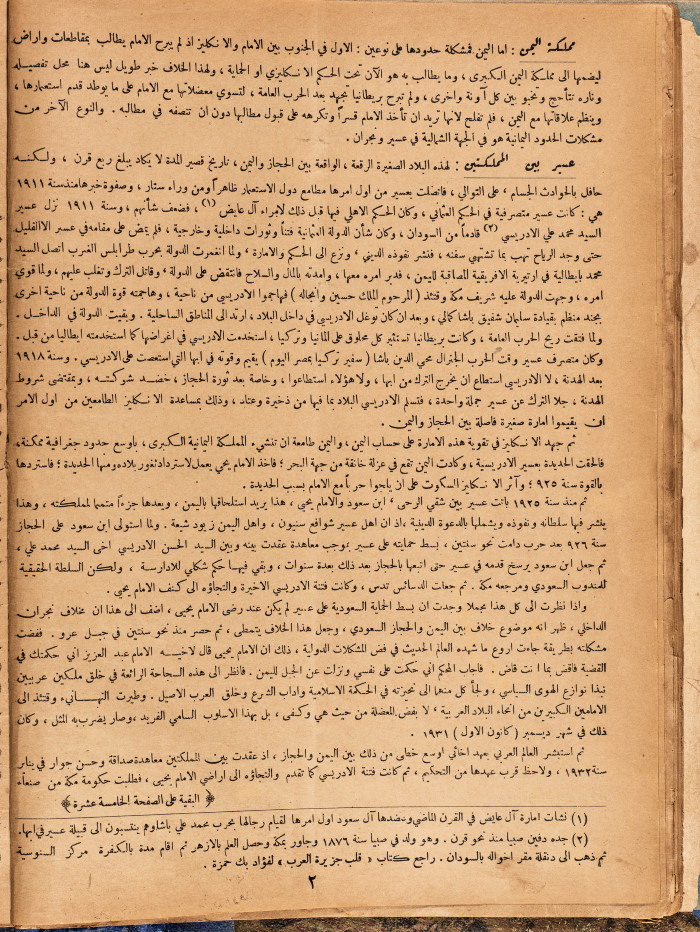 مملكة اليمن : اما اليمن فمشكلة حدودها على نوعين : الاول في الجنوب بين الامام والانكليز اذ لم يبرح الامام يطالب بمقاطعات واراض
ليضمها الى مملكة اليمن الكبرى ، وما يطالب به هو الآن تحت الحكم الانكليزي او الحماية ، ولهذا الخلاف خبر طويل ليس هنا محل تفصيله
وناره تتأجج وتخبو بين كل آونة واخرى ، ولم تبرح بريطانيا تجهد بعد الحرب العامة ، لتسوي معضلاتها مع الامام على ما يوطد قدم استعمارها ،
وينظم علاقاتها مع اليمن ، فلم تفلح لانها تريد ان تأخذ الامام قسراً وتكرهه على قبول مطالبها دون ان تنصفه في مطالبه . والنوع الآخر من
مشكلات الحدود اليمانية هو في الجهة الشمالية في عسير ونجران .
عسير بين المملكتين : لهذه البلاد الصغيرة الرقعة ، الواقعة بين الحجاز واليمن ، تاريخ قصير المدة لا يكاد يبلغ ربع قرن ، ولكنه
حافل بالحوادث الجسام ، على التوالي ، فاتصلت بعسير من اول امرها مطامع دول الاستعمار ظاهراً ومن وراء ستار ، وصفوة خبرها منذ سنة ١٩١١
هي : كانت عسير متصرفية في الحكم العثماني ، وكان الحكم الاهلي فيها قبل ذلك لامراء آل عايض (١) ، فضعف شأنهم ، وسنة ١٩١١ نزل عسير
السيد محمد علي الادريسي (٢) قادماً من السودان ، وكان شأن الدولة العثمانية فتناً وثورات داخلية وخارجية ، فلم يمض على مقامه في عسير الا القليل
حتى وجد الرياح تهب بما تشتهي سفنه ، فنشر نفوذه الديني ' ونزع الى الحكم والامارة ' ولما انغمرت الدولة بحرب طرابلس الغرب اتصل السيد
محمد بايطالية في ارتيرية الافريقية المصاقبة لليمن ، فدبر امره معها ، وامدته بالمال والسلاح فانتقض على الدولة ' وقاتل الترك وتغلب عليهم ، ولما قوي
امره ، وجهت الدولة عليه شريف مكة وقتئذ ( المرحوم الملك حسين وانجاله ) فهاجموا الادريسي من ناحية ، وهاجمته قوة الدولة من ناحية اخرى
بجند منظم بقيادة سليمان شفيق باشا كمالي ، وبعد ان كان توغل الادريسي في داخل البلاد ، ارتد الى المناطق الساحلية . وبقيت الدولة في الداخل .
ولما فتقت ريح الحرب العامة ، وكانت بريطانيا تستثير كل مخلوق على المانيا وتركيا ، استخدمت الادريسي في اغراضها كما استخدمته ايطاليا من قبل .
وكان متصرف عسير وقت الحرب الجنرال محي الدين باشا ( سفير تركيا بمصر اليوم ) يقيم وقوته في ابها التي استعصت على الادريسي . وسنة ١٩١٨
بعد الهدنة ، لا الادريسي استطاع ان يخرج الترك من ابها ، ولا هؤلاء استطاعوا ، وخاصة بعد ثورة الحجاز ، خضد شوكته ، وبمقتضى شروط
الهدنة ، جلا الترك عن عسير جملة واحدة ، فتسلم الادريسي البلاد بما فيها من ذخيرة وعتاد ، وذلك بمساعدة الانكليز الطامعين من اول الامر
ان يقيموا امارة صغيرة فاصلة بين الحجاز واليمن .
ثم جهد الانكليز في تقوية هذه الامارة على حساب اليمن ، واليمن طامعة ان تنشيء المملكة اليمانية الكبرى ، باوسع حدود جغرافية ممكنة،
فالحقت الحديدة بعسير الادريسية ، وكادت اليمن تقع في عزلة خانقة من جهة البحر ؛ فاخذ الامام يحيي يعمل لاسترداد ثغور بلاده ومنها الحديدة ؛ فاستردها
بالقوة سنة ٩٢٥ ؛ وآثر الانكليز السكوت على ان يلجوا حرباً مع الامام بسبب الحديدة .
ثم منذ سنة ١٩٢٥ باتت عسير بين شقي الرحى ' ابن سعود والامام يحيى ، هذا يريد استلحاقها باليمن ، ويعدها جزءاً متمماً لمملكته ، وهذا
ينشر فيها سلطانه ونفوذه ويشملها بالدعوة الدينية ، اذ ان اهل عسير شوافع سنيون ، واهل اليمن زيود شيعة . ولما استولى ابن سعود على الحجاز
سنة ٩٢٦ بعد حرب دامت نحو سنتين ، بسط حمايته على عسير بموجب معاهدة عقدت بينه وبين السيد الحسن الادريسي اخى السيد محمد علي ،
ثم جعل ابن سعود يرسخ قدمه في عسير حتى اتبعها بالحجاز بعد ذلك بعدة سنوات ، وبقي فيها حكم شكلي للادارسة ، ولكن السلطة الحقيقية
للمندوب السعودي ومرجعه مكة . ثم جعلت الدسائس تدس ، وكانت فتنة الادريسي الاخيرة والتجاؤه الى كنف الامام يحيى .
واذا نظرت الى كل هذا مجملا وجدت ان بسط الحماية السعودية على عسير لم يكن عند رضى الامام يحيى ، اضف الى هذا ان مخلاف نجران
الداخلي ، ظهر انه موضوع خلاف بين اليمن والحجاز السعودي ، وجعل هذا الخلاف يتمطى ، ثم حصر منذ نحو سنتين في جبل عرو . ففضت
مشكلته بطريقة جاءت اروع ما شهده العالم الحديث في فض المشكلات الدولية ، ذلك ان الامام يحيى قال لاخيه الامام عبد العزيز اني حكمتك في
القضية فاقض بما انت قاض . فاجاب المحكم اني حكمت على نفسي ونزلت عن الجبل لليمن . فانظر الى هذه السجاحة الرائعة في خلق ملكين عربيين
نبذا نوازع الهوى السياسي ، ولجأ كل منهما الى نحيزته في الحكمة الاسلامية واداب الشرع وخلق العرب الاصيل . وطيرت التهانيء وقتئذ الى
الامامين الكبيرين من انحاء البلاد العربية ' لا بفض المعضلة من حيث هي وكفى ، بل بهذا الاسلوب السامي الفريد ، وصار يضرب به المثل ، وكان
ذلك في شهر ديسمبر ( كانون الاول ) ١٩٣١ .
ثم استبشر العالم العربي بعهد اخائي اوسع خطى من ذلك بين اليمن والحجاز ، اذ عقدت بين المملكتين معاهدة صداقة وحسن جوار في يناير
سنة ١٩٣٢ ، ولاحظ قرب عهدها من التحكيم ، ثم كانت فتنة الادريسي كما تقدم والتجاؤه الى اراضي الامام يحيى ، فطلبت حكومة مكة من صنعاء
﴿ البقية على الصفحة الخامسة عشرة ﴾
(١) نشات امارة آل عايض في القرن الماضي وعضدها آل سعود اول امرها لقيام رجالها بحرب محمد علي باشا وهم ينتسبون الى قبيلة عسير في ابها.
(٢) جده دفين صبيا منذ نحو قرن . وهو ولد في صبيا سنة ١٨٧٦ وجاور بمكة وحصل العلم بالازهر ثم اقام مدة بالكفرة مركز السنوسية
ثم ذهب الى دنقلة مقر اخواله بالسودان . راجع كتاب « قلب جزيرة العرب » لفؤاد بك حمزة .
٢